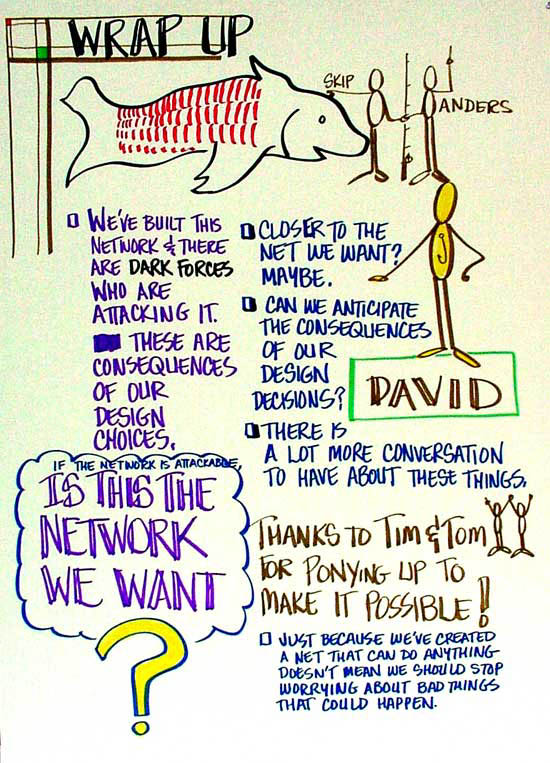 WRAP UP
SKIP
ANDERS
WE'VE BUILT THIS
NETWORK & THERE
ARE DARK FORCES
WHO ARE
ATTACKING IT.
THESE ARE
CONSEQUENCES
OF OUR
DESIGN
CHOICES.
IF THE NETWORK IS ATTACKABLE,
IS THIS THE
NETWORK
WE WANT
?
CLOSER TO THE
NET WE WANT?
MAYBE.
CAN WE ANTICIPATE
THE CONSEQUENCES
OF OUR
DESIGN
DECISIONS?
DAVID
THERE IS
A LOT MORE CONVERSATION
TO HAVE ABOUT THESE THINGS.
THANKS TO TIM & TOM
FOR PONYING UP TO
MAKE IT POSSIBLE!
JUST BECAUSE WE'VE CREATED
A NET THAT CAN DO ANYTHING
DOESN'T MEAN WE SHOULD STOP
WORRYING ABOUT BAD THINGS
THAT COULD HAPPEN.